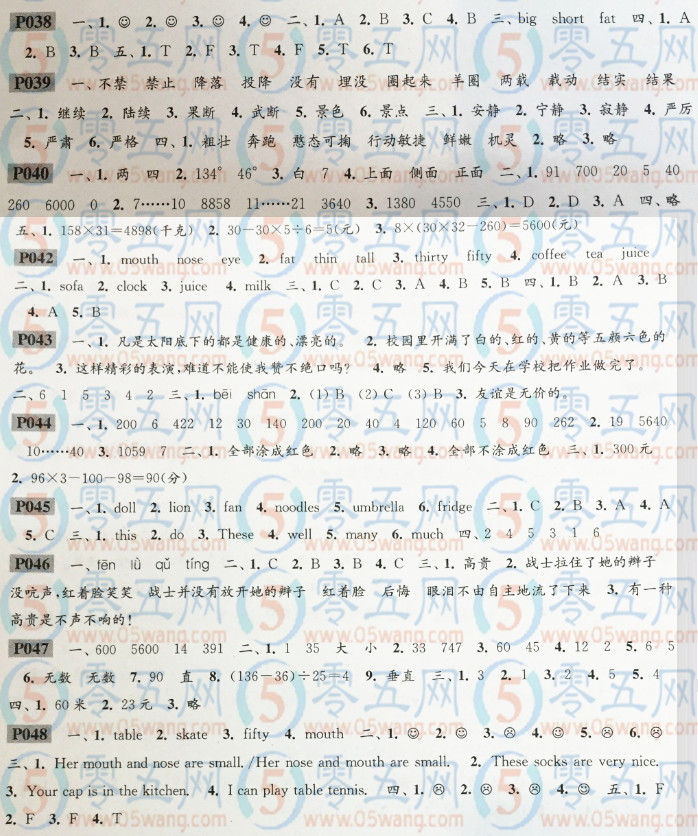 P038 一、1. ☺ 2. ☺ 3. ☺ 4. ☺ 二、1. A 2. B 3. C 4. B 三、big short fat 四、1. A
2. B 3. B 五、1. T 2. F 3. T 4. F 5. T 6. T
P039 一、不禁 禁止 降落 投降 没有 埋没 圈起来 羊圈 两载 载动 结实 结果
二、1. 继续 2. 陆续 3. 果断 4. 武断 5. 景色 6. 景点 三、1. 安静 2. 宁静 3. 寂静 4. 严厉
5. 严肃 6. 严格 四、1. 粗壮 奔跑 憨态可掬 行动敏捷 鲜嫩 机灵 2. 略 3. 略
P040 一、1. 两 四 2. 134° 46° 3. 白 7 4. 上面 侧面 正面 二、1. 91 700 20 5 40
260 6000 0 2. 7……10 8858 11……21 3640 3. 1380 4550 三、1. D 2. D 3. A 四、略
五、1. 158×31=4898(千克) 2. 30-30×5÷6=5(元) 3. 8×(30×32-260)=5600(元)
P042 一、1. mouth nose eye 2. fat thin tall 3. thirty fifty 4. coffee tea juice
二、1. sofa 2. clock 3. juice 4. milk 三、1. C 2. C 3. A 4. B 5. B 四、1. B 2. A 3. B
4. A 5. B
P043 一、1. 凡是太阳底下的都是健康的、漂亮的。 2. 校园里开满了白的、红的、黄的等五颜六色的
花。 3. 这样精彩的表演,难道不能使我赞不绝口吗? 4. 略 5. 我们今天在学校把作业做完了。
二、6 1 5 3 4 2 三、1. bēi shān 2. (1) B (2) C (3) B 3. 友谊是无价的。
P044 一、1. 200 6 422 12 30 140 200 20 40 4 120 60 5 8 90 262 2. 19 5640
10……40 3. 1059 7 二、1. 全部涂成红色 2. 略 3. 略 4. 全部不涂成红色 三、1. 300 元
2. 96×3-100-98=90(分)
P045 一、1. doll 2. lion 3. fan 4. noodles 5. umbrella 6. fridge 二、1. C 2. B 3. A 4. A
5. C 三、1. this 2. do 3. These 4. well 5. many 6. much 四、2 4 5 3 1 6
P046 一、tēn lǜ qǔ tíng 二、1. C 2. B 3. B 4. C 三、1. 高贵 2. 战士拉住了她的辫子
没吭声,红着脸笑笑 战士并没有放开她的辫子 红着脸 后悔 眼泪不由自主地流了下来 3. 有一种
高贵是不声不响的!
P047 一、600 5600 14 391 二、1. 1 35 大 小 2. 33 747 3. 60 45 4. 12 2 5. 6 5
6. 无数 无数 7. 90 直 8. (136-36)÷25=4 9. 垂直 三、1. 3 2. 1 3. 2 4. 5 5. 4
四、1. 60 米 2. 23 元 3. 略
P048 一、1. table 2. skate 3. fifty 4. mouth 二、1. ☺ 2. ☺ 3. ☹ 4. ☺ 5. ☹ 6. ☹
三、1. Her mouth and nose are small. /Her nose and mouth are small. 2. These socks are very nice.
3. Your cap is in the kitchen. 4. I can play table tennis. 四、1. ☹ 2. ☹ 3. ☹ 4. ☺ 五、1. F
2. F 3. F 4. T